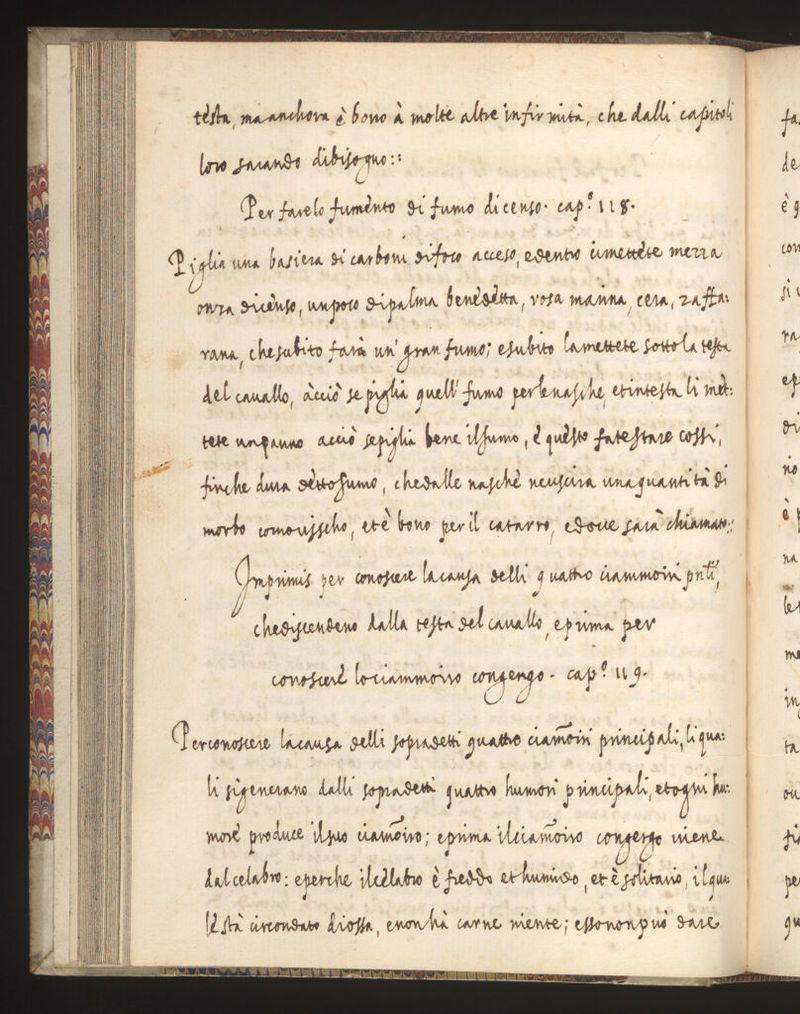 testa, ma anchora è bono à molte altre infirmità, che dalli capitoli
loro sarando dibisogno::
Per farelo fumento di fumo dicenso. cap.º 118.
Piglia una basiera di carboni difoco acceso, edentro cimettete mezza
onza dicenso, unpoco dipalma benedetta, rosa manna, cera, zaffa:
rana, chesubito farà un' gran fumo; esubito lamettete sotto la testa
del cauallo, acciò se piglia quell' fumo perlenasche, etintesta li met:
tete unpanno acciò sepiglia bene ilfumo, è questo fatestare cossì,
finche dura dettofumo, chedalle naschè neuscira unaquantità di
morbo comouisscho, etè bono per il catarro, edoue sarà chiamato::
Imprimis per conoscere lacausa delli quattro ciammoiri pnti,
chediscendeno dalla testa del cauallo, eprima per
conoscerè lociammoiro congengo. cap.º 119.
Perconoscere lacausa delli sopradetti quattro ciamoiri principali, liqua:
li sigenerano dalli sopradetti quattro humori principali, etogni hu:
morè produce ilsuo ciamoiro; eprima ilciamoiro congergo uiene
dalcelabro: eperche ilcelabro è freddo et humido, et è solitario, ilqua
lè stà circondato diossa, enonhà carne niente; essononpuò dare